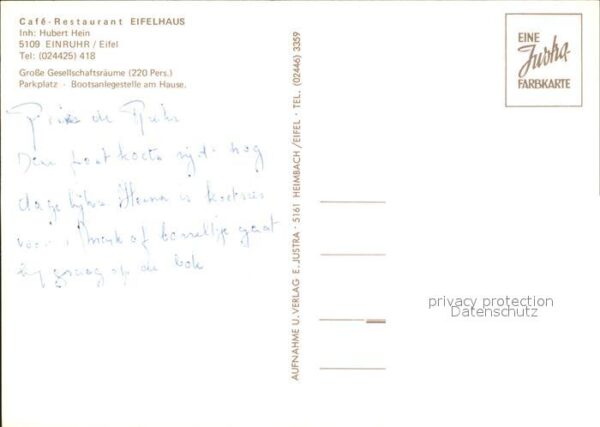 Café-Restaurant EIFELHAUS
Inh: Hubert Hein
5109 EINRUHR / Eifel
Tel: (024425) 418
Große Gesellschaftsräume (220 Pers.)
Parkplatz · Bootsanlegestelle am Hause.
de Ruhr
rijdt nog
dagelijks is koetsier
voor 1 mark of borreltje gaat
hij graag op de bok
AUFNAHME U. VERLAG E. JUSTRA · 5161 HEIMBACH/EIFEL · TEL. (02446) 3359
EINE
Justra
FARBKARTE
privacy protection
Datenschutz